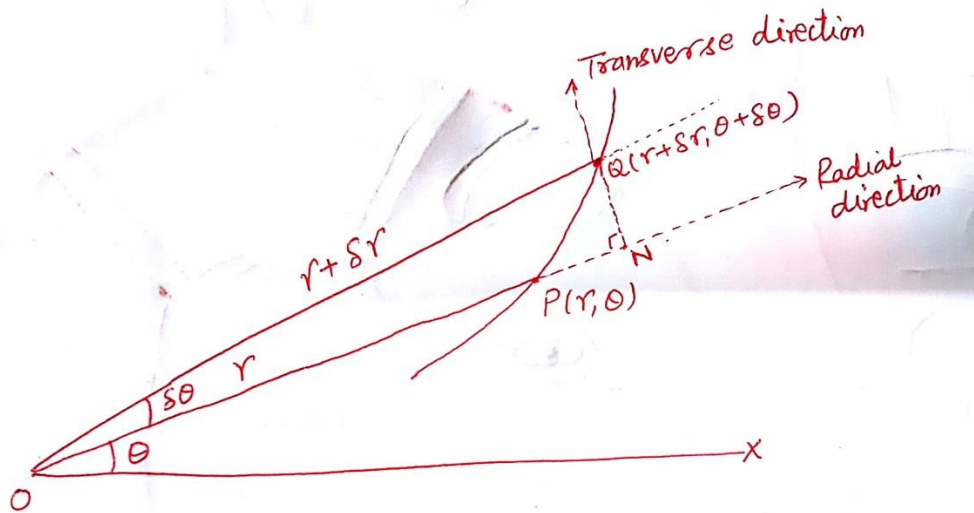 Transverse direction
Q(r+δr, θ+δθ)
Radial
direction
r+δr
N
P(r, θ)
r
δθ
θ
X
O